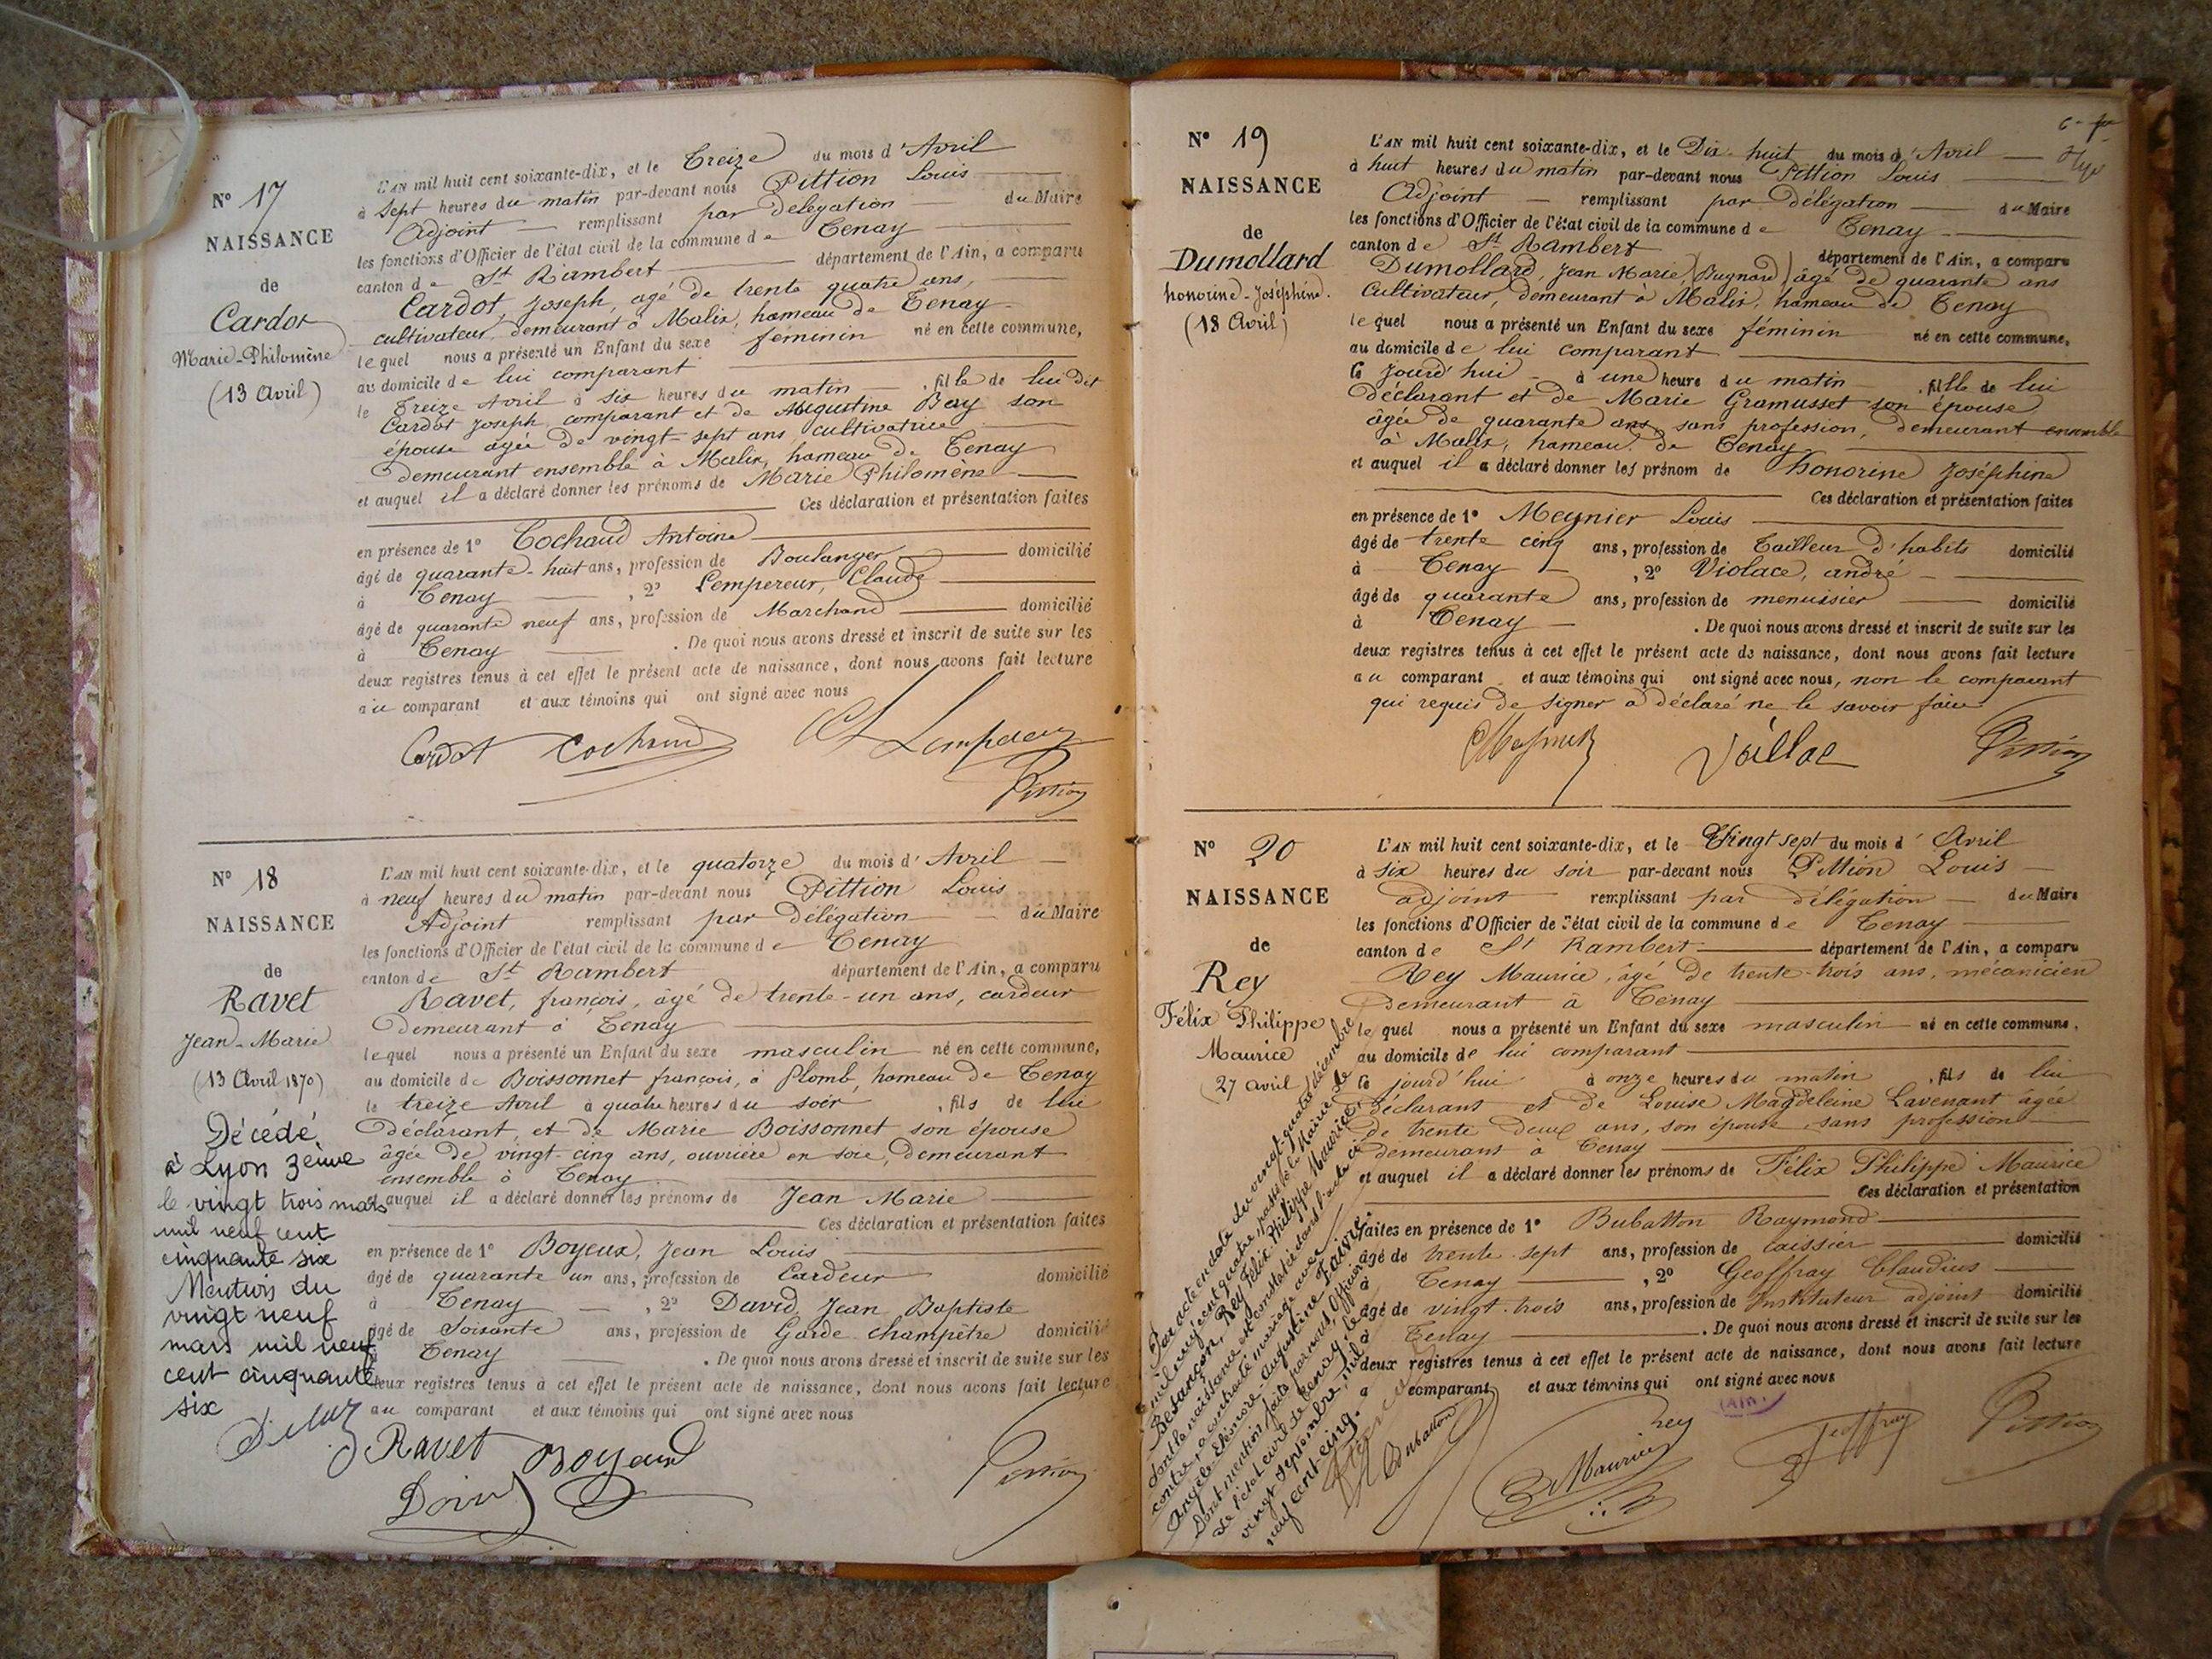 N° 17
NAISSANCE
de
Cardot
Marie-Philomène
(13 Avril)
L'AN mil huit cent soixante-dix, et le Treize du mois d'Avril
à sept heures du matin par-devant nous Pittion Louis
Adjoint remplissant par délégation du Maire
les fonctions d'Officier de l'état civil de la commune de Tenay
canton de St Rambert département de l'Ain, a comparu
Cardot, Joseph, agé de trente quatre ans,
cultivateur, demeurant à Malix, hameau de Tenay
lequel nous a présenté un Enfant du sexe féminin né en cette commune,
au domicile de lui comparant
le Treize Avril à six heures du matin, fille de lui dit
Cardot Joseph comparant et de Augustine Bay son
épouse agée de vingt-sept ans, cultivatrice
demeurant ensemble à Malix, hameau de Tenay
et auquel il a déclaré donner les prénoms de Marie Philomène
Ces déclaration et présentation faites
en présence de 1° Cochaud Antoine
âgé de quarante-huit ans, profession de Boulanger domicilié
à Tenay, 2° Lempereur, Claude
âgé de quarante neuf ans, profession de Marchand domicilié
à Tenay. De quoi nous avons dressé et inscrit de suite sur les
deux registres tenus à cet effet le présent acte de naissance, dont nous avons fait lecture
au comparant et aux témoins qui ont signé avec nous
Cardot Cochaud Lempereur
Pittion
N° 18
NAISSANCE
de
Ravet
Jean-Marie
(13 Avril 1870)
Décédé
à Lyon 3eme
le vingt trois mars
mil neuf cent
cinquante six
Mention du
vingt neuf
mars mil neuf
cent cinquante
six
L'AN mil huit cent soixante-dix, et le quatorze du mois d'Avril
à neuf heures du matin par-devant nous Pittion Louis
Adjoint remplissant par délégation du Maire
les fonctions d'Officier de l'état civil de la commune de Tenay
canton de St Rambert département de l'Ain, a comparu
Ravet, françois, âgé de trente-un ans, cardeur
demeurant à Tenay
lequel nous a présenté un Enfant du sexe masculin né en cette commune,
au domicile de Boissonnet françois, à Plomb, hameau de Tenay
le treize Avril à quatre heures du soir, fils de lui
déclarant, et de Marie Boissonnet son épouse
âgée de vingt-cinq ans, ouvrière en soie, demeurant
ensemble à Tenay
et auquel il a déclaré donner les prénoms de Jean Marie
Ces déclaration et présentation faites
en présence de 1° Boyeux, Jean Louis
âgé de quarante un ans, profession de Cardeur domicilié
à Tenay, 2° David, Jean Baptiste
âgé de Soixante ans, profession de Garde champêtre domicilié
à Tenay. De quoi nous avons dressé et inscrit de suite sur les
deux registres tenus à cet effet le présent acte de naissance, dont nous avons fait lecture
au comparant et aux témoins qui ont signé avec nous
Ravet Boyeux
David Pittion
N° 19
NAISSANCE
de
Dumollard
honorine-Joséphine.
(18 Avril)
L'AN mil huit cent soixante-dix, et le Dix-huit du mois d'Avril
à huit heures du matin par-devant nous Pittion Louis
Adjoint remplissant par délégation du Maire
les fonctions d'Officier de l'état civil de la commune de Tenay
canton de St Rambert département de l'Ain, a comparu
Dumollard, Jean Marie (Bugnard) âgé de quarante ans
Cultivateur, demeurant à Malix, hameau de Tenay
lequel nous a présenté un Enfant du sexe féminin né en cette commune,
au domicile de lui comparant
ce jourd'hui à une heure du matin, fille de lui
déclarant et de Marie Gramusset son épouse
âgée de quarante ans, sans profession, demeurant ensemble
à Malix, hameau de Tenay
et auquel il a déclaré donner les prénom de honorine Joséphine
Ces déclaration et présentation faites
en présence de 1° Meynier Louis
âgé de trente cinq ans, profession de Tailleur d'habits domicilié
à Tenay, 2° Violace, andré
âgé de quarante ans, profession de menuisier domicilié
à Tenay. De quoi nous avons dressé et inscrit de suite sur les
deux registres tenus à cet effet le présent acte de naissance, dont nous avons fait lecture
au comparant et aux témoins qui ont signé avec nous, non le comparant
qui requis de signer a déclaré ne le savoir faire
Pittion
N° 20
NAISSANCE
de
Rey
Félix Philippe
Maurice
(27 avril)
L'AN mil huit cent soixante-dix, et le Vingt sept du mois d'Avril
à six heures du soir par-devant nous Pittion Louis
adjoint remplissant par délégation du Maire
les fonctions d'Officier de l'état civil de la commune de Tenay
canton de St Rambert département de l'Ain, a comparu
Rey Maurice, âgé de trente-trois ans, mécanicien
demeurant à Tenay
lequel nous a présenté un Enfant du sexe masculin né en cette commune,
au domicile de lui comparant
ce jourd'hui à onze heures du matin, fils de lui
déclarant et de Louise Magdeleine Lavenant agée
de trente deux ans, son épouse, sans profession
demeurant à Tenay
et auquel il a déclaré donner les prénoms de Félix Philippe Maurice
Ces déclaration et présentation
faites en présence de 1° Bubatton Raymond
âgé de trente-sept ans, profession de caissier domicilié
à Tenay, 2° Geoffray Claudius
âgé de vingt-trois ans, profession de Instituteur adjoint domicilié
à Tenay. De quoi nous avons dressé et inscrit de suite sur les
deux registres tenus à cet effet le présent acte de naissance, dont nous avons fait lecture
a comparant et aux témoins qui ont signé avec nous
Par acte en date du vingt-quatre décembre
mil neuf cent quatre, passé à la Mairie de
Besançon, Rey Félix Philippe Maurice,
dont la naissance est constatée dans l'acte ci
contre, a contracté mariage avec
Angèle-Eléonore-Augustine Faivre.
Dont mention faite par nous, Officier
de l'état civil de Tenay, le
vingt septembre, mil
neuf cent cinq.
Bubatton Rey Maurice Geoffray Pittion
(AIN)